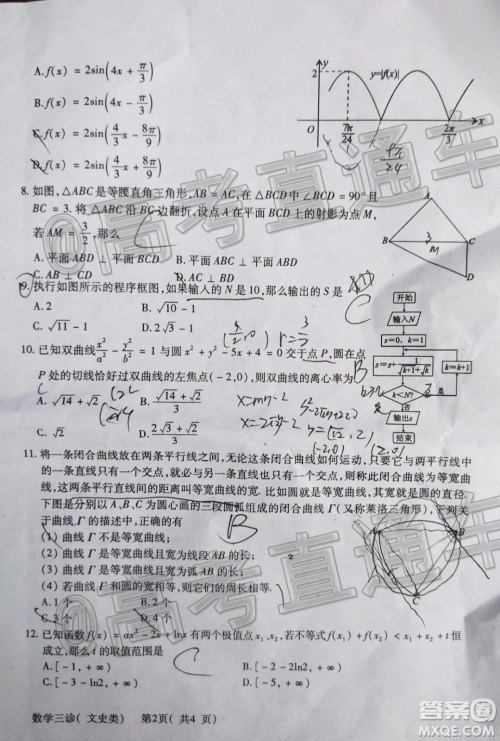 A. f(x) = 2sin(4x + π/3)
B. f(x) = 2sin(4x - π/3)
C. f(x) = 2sin(4/3 x + 8π/9)
D. f(x) = 2sin(4/3 x - 8π/9)
y
2
y=|f(x)|
O
7π/24
2π/3
x
8. 如图, △ABC 是等腰直角三角形, AB = AC, 在 △BCD 中 ∠BCD = 90°且
BC = 3. 将 △ABC 沿 BC 边翻折, 设点 A 在平面 BCD 上的射影为点 M,
若 AM = 3/2, 那么
A. 平面 ABD ⊥ 平面 BCD
B. 平面 ABC ⊥ 平面 ABD
C. AB ⊥ CD
D. AC ⊥ BD
A
B
C
D
3
M
9. 执行如图所示的程序框图, 如果输入的 N 是 10, 那么输出的 S 是
C
A. 2
B. √10 - 1
C. √11 - 1
D. 2√3 - 1
开始
输入N
s=0, k=1
s=s+1/(√(k+1)+√k)
k=k+1
k<N?
是
否
输出s
结束
10. 已知双曲线 x²/a² - y²/b² = 1 与圆 x² + y² - 5x + 4 = 0 交于点 P, 圆在点
P 处的切线恰好过双曲线的左焦点(-2,0), 则双曲线的离心率为
B
A. √14 + √2
B. (√14 + √2)/3
C. √2
D. (2√3 + √2)/3
x=my-2
11. 将一条闭合曲线放在两条平行线之间, 无论这条闭合曲线如何运动, 只要它与两平行线中
的一条直线只有一个交点, 就必与另一条直线也只有一个交点, 则称此闭合曲线为等宽曲
线, 这两条平行直线间的距离叫等宽曲线的宽比. 比如圆就是等宽曲线, 其宽就是圆的直径.
下图是分别以 A、B、C 为圆心画的三段圆弧组成的闭合曲线 Γ (又称莱洛三角形), 下列关
于曲线 Γ 的描述中, 正确的有
B
(1) 曲线 Γ 不是等宽曲线
(2) 曲线 Γ 是等宽曲线且宽为线段 AB 的长
(3) 曲线 Γ 是等宽曲线且宽为弧 AB 的长
(4) 在曲线 Γ 和圆的宽相等, 则它们的周长相等.
A. 1 个
B. 2 个
C. 3 个
D. 4 个
B
C
12. 已知函数 f(x) = ax² - 2x + lnx 有两个极值点 x₁、x₂, 若不等式 f(x₁) + f(x₂) < x₁ + x₂ + t 恒
成立, 那么 t 的取值范围是
A. [-1, +∞)
B. [-2 - 2ln2, +∞)
C. [-3 - ln2, +∞)
D. [-5, +∞)
数学三诊( 文史类) 第2页( 共4 页)
@高考直通车
@高考直通车
答案圈